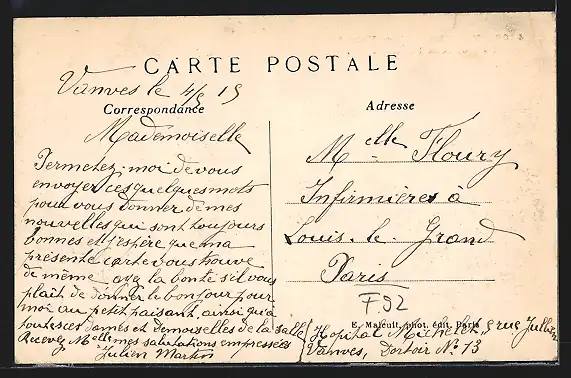 CARTE POSTALE
Vanves le 4/5 15
Correspondance
Mademoiselle
Permetez-moi de vous
envoyer ces quelques mots
pour vous donner de mes
nouvelles qui sont toujours
bonnes et j'espère que ma
présente carte vous trouve
de même aye la bonté s'il vous
plait de donner le bonjour pour
moi au petit paisant, ainsi qu'a
toutes ces dames et demoiselles de la salle
Recevez Melle mes salutations empressées
Julien Martin
Adresse
Melle Floury
Infirmières à
Louis-le-Grand
Paris
F.92
E. Malcuit, phot. édit. Paris
Hopital Michelet, 9 rue Jullien
Vanves, Dortoir No 13